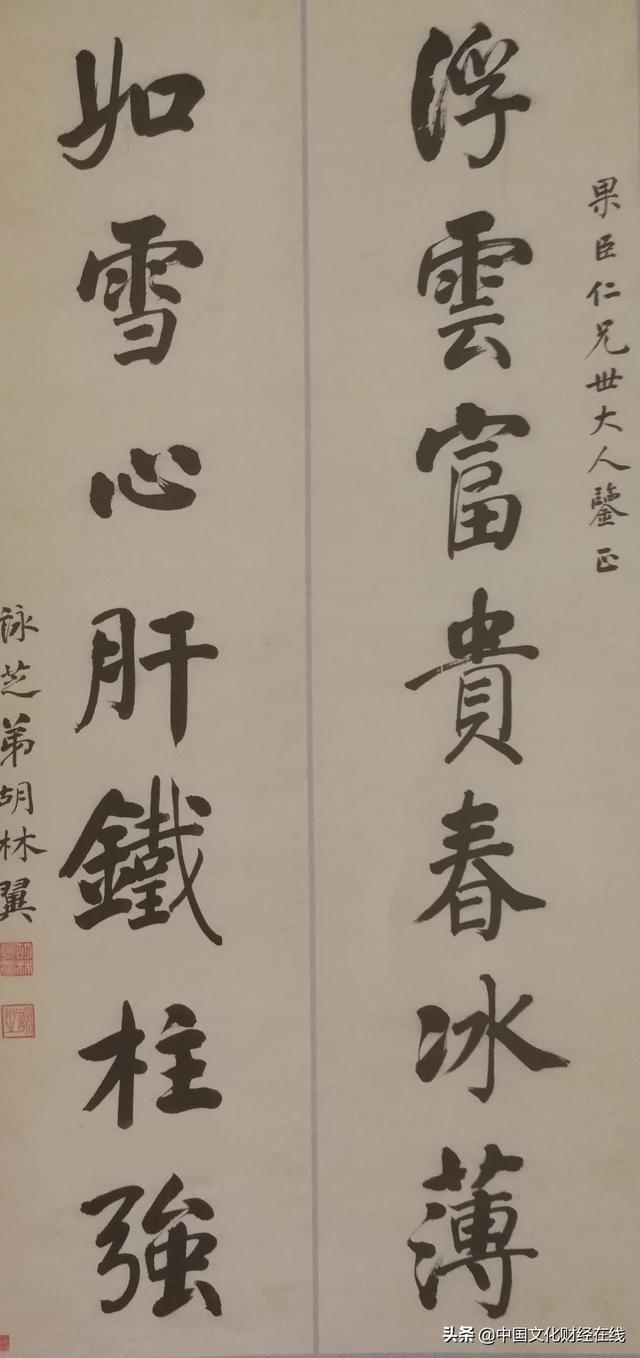 果臣仁兄世大人鑒正
浮雲富貴春冰薄
如雪心肝鐵柱強
詠芝弟胡林翼
头条 @中国文化财经在线